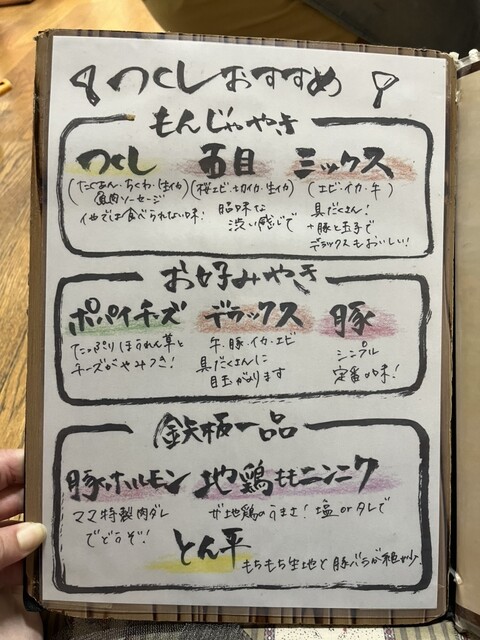 つくしおすすめ
もんじゃやき
つくし 五目 ミックス
(たくあん・ちくわ・生イカ
魚肉ソーセージ
他では食べられない味!
(桜エビ・切イカ・生イカ)
渋い感じで
(エビ・イカ・牛)
具だくさん!
+豚と玉子で
デラックスもおいしい!
お好みやき
ポパイチーズ デラックス 豚
たっぷりほうれん草と
チーズがやみつき!
牛・豚・イカ・エビ
具だくさんに
目玉がのります
シンプル
定番の味!
鉄板一品
豚ホルモン 地鶏ももニンニク
ママ特製肉ダレ
でどうぞ!
ザ地鶏のうまさ!塩orタレで
とん平
もちもち生地と豚バラが絶妙